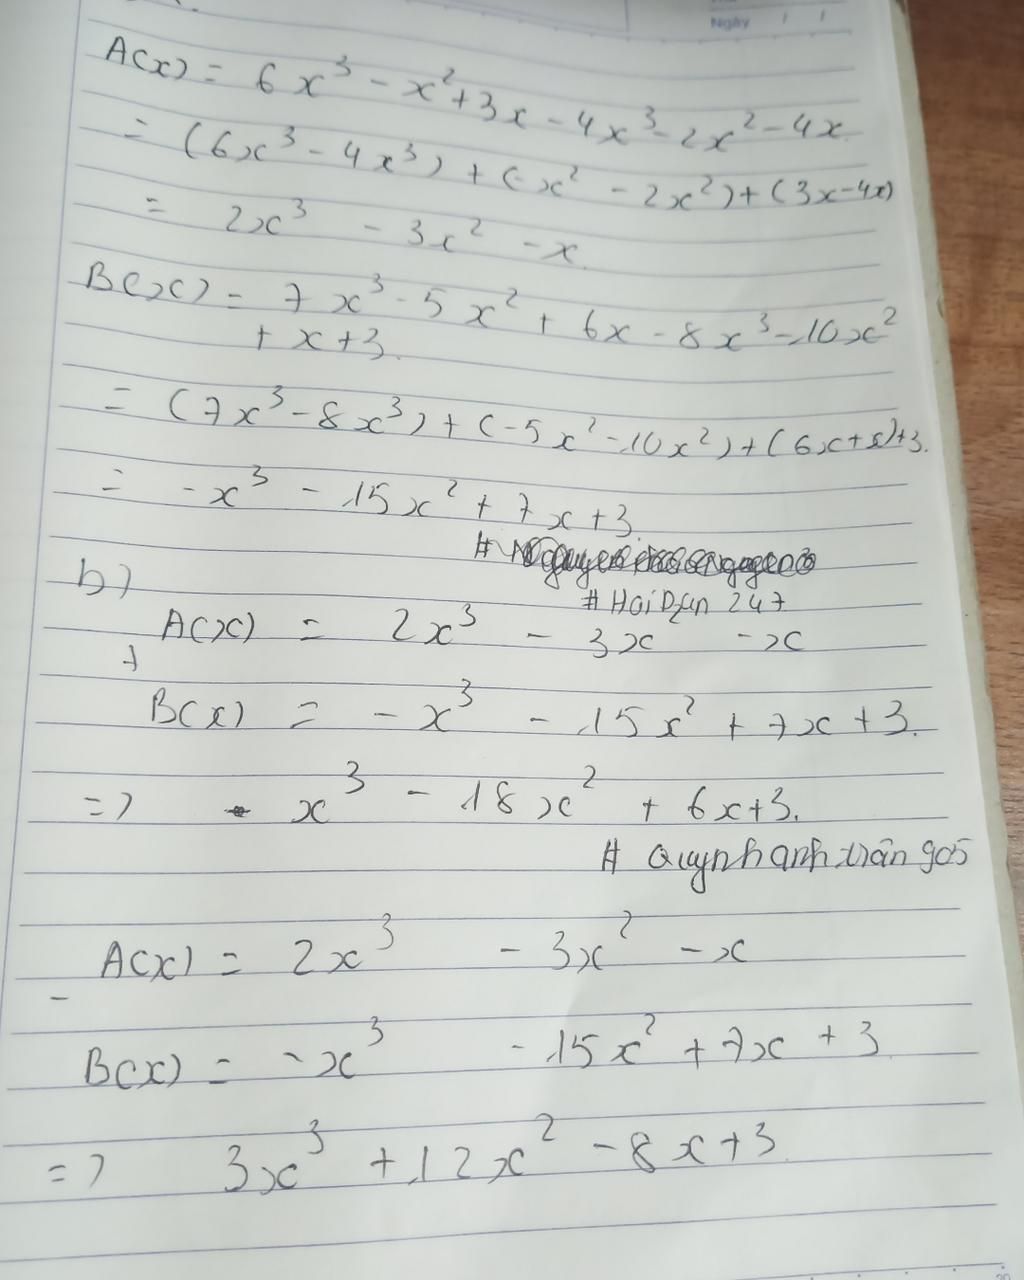 Ngày / /
A(x) = 6x³ - x² + 3x - 4x³ - 2x² - 4x
= (6x³ - 4x³) + (-x² - 2x²) + (3x - 4x)
= 2x³ - 3x² - x
B(x) = 7x³ - 5x² + 6x - 8x³ - 10x²
+ x + 3.
= (7x³ - 8x³) + (-5x² - 10x²) + (6x + x) + 3.
= -x³ - 15x² + 7x + 3.
#
# HoiDan 247
b)
A(x) = 2x³ - 3x - x
+
B(x) = -x³ - 15x² + 7x + 3.
=> x³ - 18x² + 6x + 3.
# Quynhanhtrân 905
A(x) = 2x³ - 3x² - x
-
B(x) = -x³ - 15x² + 7x + 3
=> 3x³ + 12x² - 8x + 3